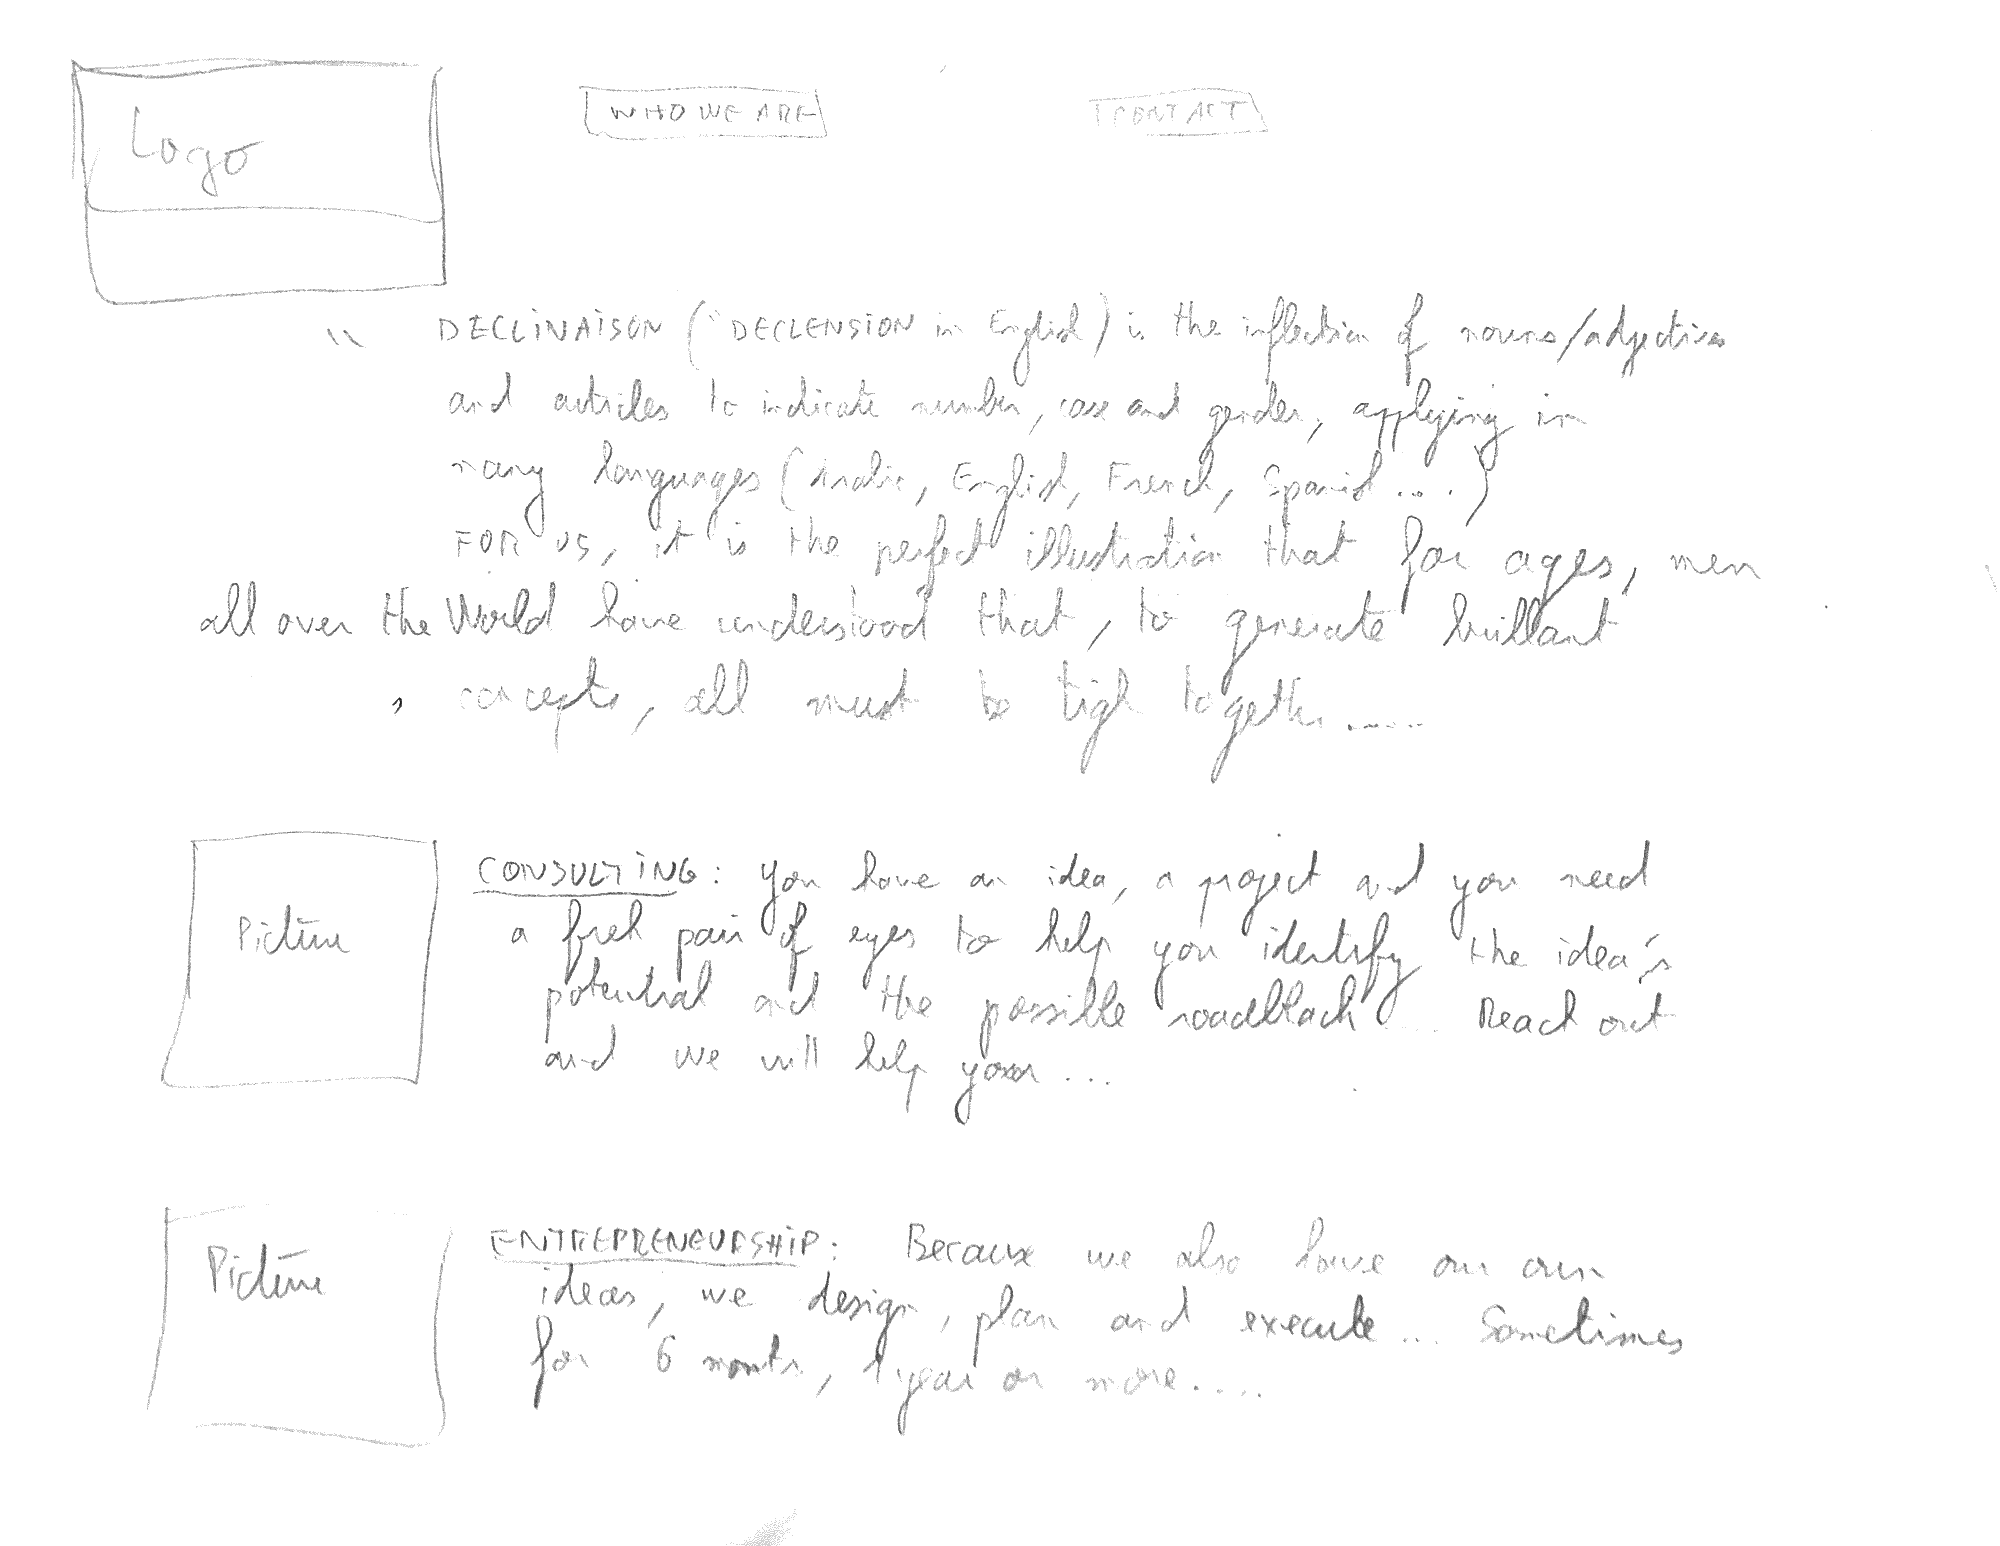 Logo
WHO WE ARE
CONTACT
" DECLINAISON ("DECLENSION in English) is the inflection of nouns/adjectives
and articles to indicate number, case and gender, applying in
many languages (Arabic, English, French, Spanish....)
FOR US, it is the perfect illustration that for ages, men
all over the World have understood that, to generate brillant
concepts, all must be tigh together......
Picture
CONSULTING: you have an idea, a project and you need
a fresh pair of eyes to help you identify the idea's
potential and the possible roadblock.... Reach out
and we will help you...
Picture
ENTREPRENEURSHIP: Because we also have our own
ideas, we design, plan and execute... Sometimes
for 6 months, 1 year or more....